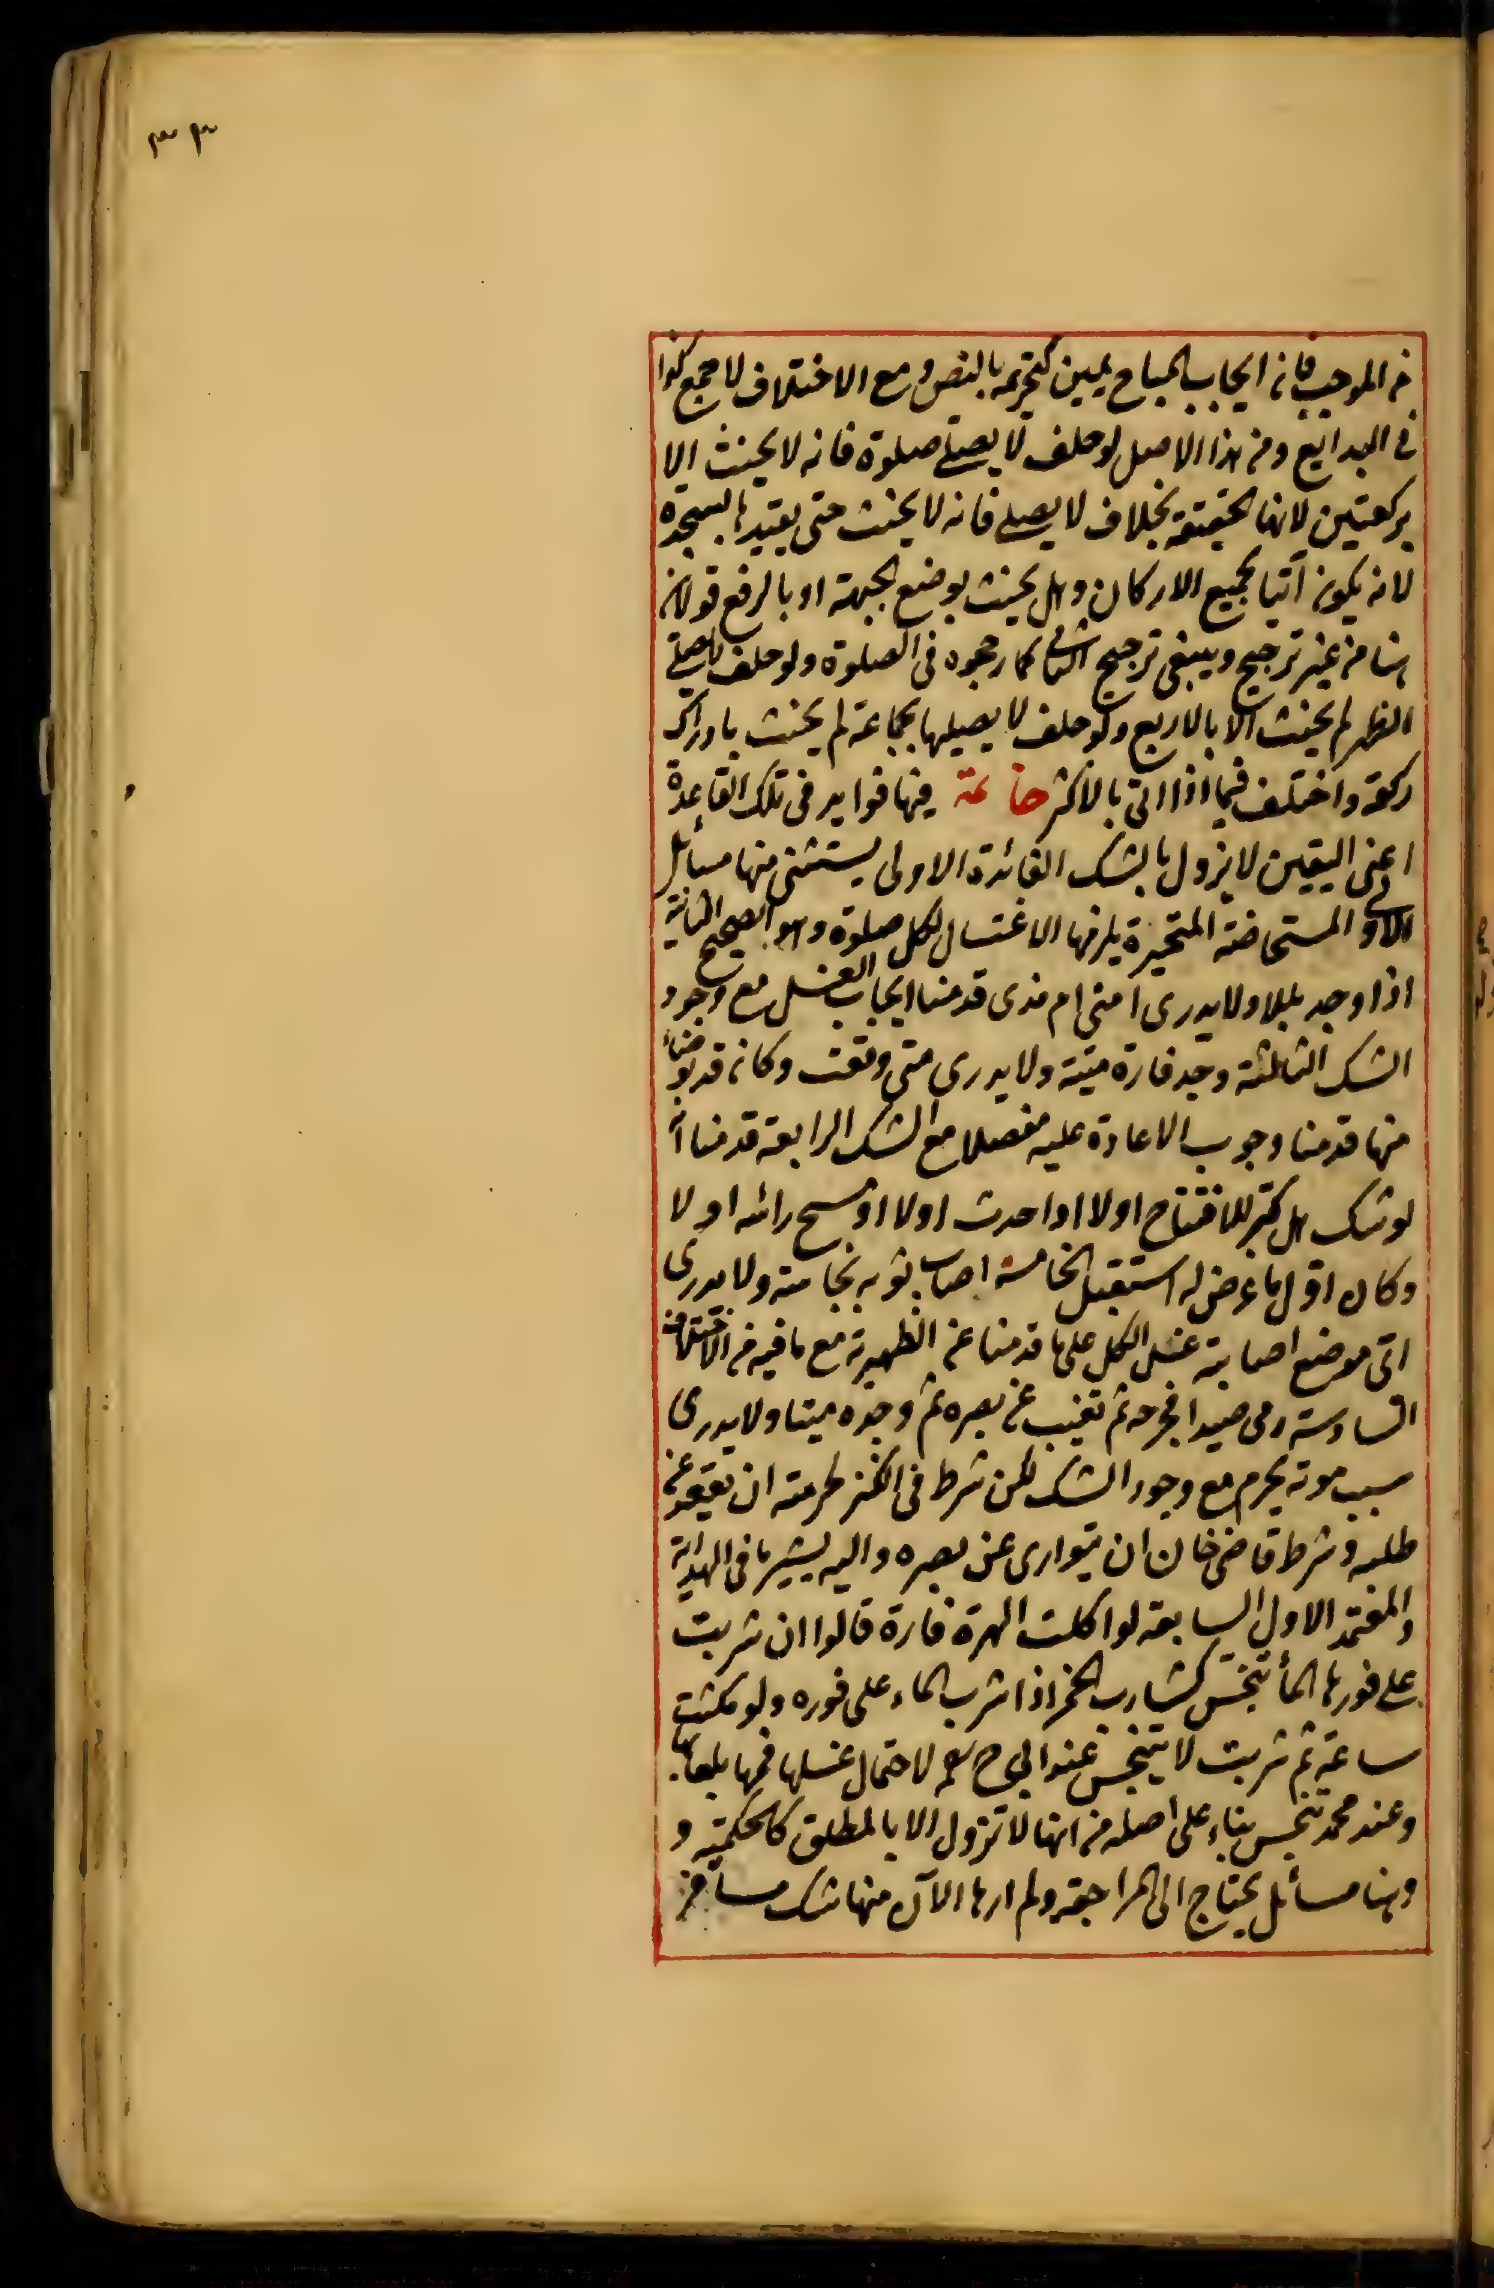 ٣٣
من الموجب فان ايجاب المباح يمين كتحريمه بالنص ومع الاختلاف لا جمع كذا
في البدايع ومن هذا الاصل لو حلف لا يصلي صلوة فانه لا يحنث الا
بركعتين لانها الحقيقة بخلاف لا يصلي فانه لا يحنث حتى يقيدها بالسجدة
لانه يكون آتيا بجميع الاركان وهل يحنث بوضع الجبهة او بالرفع قولان
هنا من غير ترجيح وينبغى ترجيح الثاني كما رجحوه فى الصلوة ولو حلف لا يصلي
الظهر لم يحنث الا بالاربع ولو حلف لا يصليها بجماعة لم يحنث بادراك
ركعة واختلف فيما اذا اتى بالاكثر خاتمة فيها فوايد فى تلك القاعدة
اعنى اليقين لا يزول بالشك الفائدة الاولى يستثنى منها مسائل
الاولى المستحاضة المتحيرة يلزمها الاغتسال لكل صلوة وهو الصحيح الثانية
اذا وجد بللا ولا يدرى امنى ام مذى قدمنا ايجاب الغسل مع وجود
الشك الثالثة وجد فارة ميتة ولا يدرى متى وقعت وكان قد توضأ
منها قدمنا وجوب الاعادة عليه مفصلا مع الشك الرابعة قدمنا انه
لو شك هل كبر للافتتاح اولا او احدث اولا او مسح راسه اولا
وكان اول ما عرض له استقبل الخامسة اصاب ثوبه نجاسة ولا يدرى
اى موضع اصابته غسل الكل على ما قدمنا عن الظهيرية مع ما فيه من الاختلاف
السادسة رمى صيدا فجرحه ثم تغيب عن بصره ثم وجده ميتا ولا يدرى
سبب موته يحرم مع وجود الشك لكن شرط فى الكنز لحرمته ان يقعد عن
طلبه وشرط قاضى خان ان يتوارى عن بصره واليه يشير ما فى الهداية
والمعتمد الاول السابعة لو اكلت الهرة فارة قالوا ان شربت
على فورها الماء تنجس كشارب الخمر اذا شرب الماء على فوره ولو مكثت
ساعة ثم شربت لا يتنجس عند ابي ح لاحتمال غسلها فمها بلعابها
وعند محمد تنجس بناء على اصله من انها لا تزول الا بالمطلق كالحكمية و
وهنا مسائل يحتاج الى المراجعة ولم ارها الآن منها شك مسافر